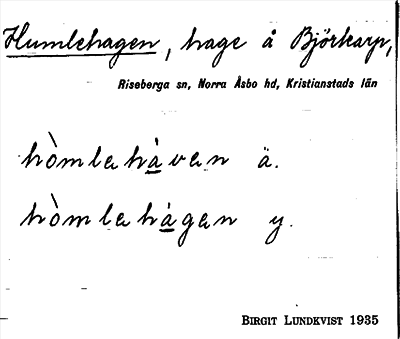 Humlehagen, hage å Björkarp,
Riseberga sn, Norra Åsbo hd, Kristianstads län
hòmlehàven ä.
hòmlehàgen y.
BIRGIT LUNDKVIST 1935